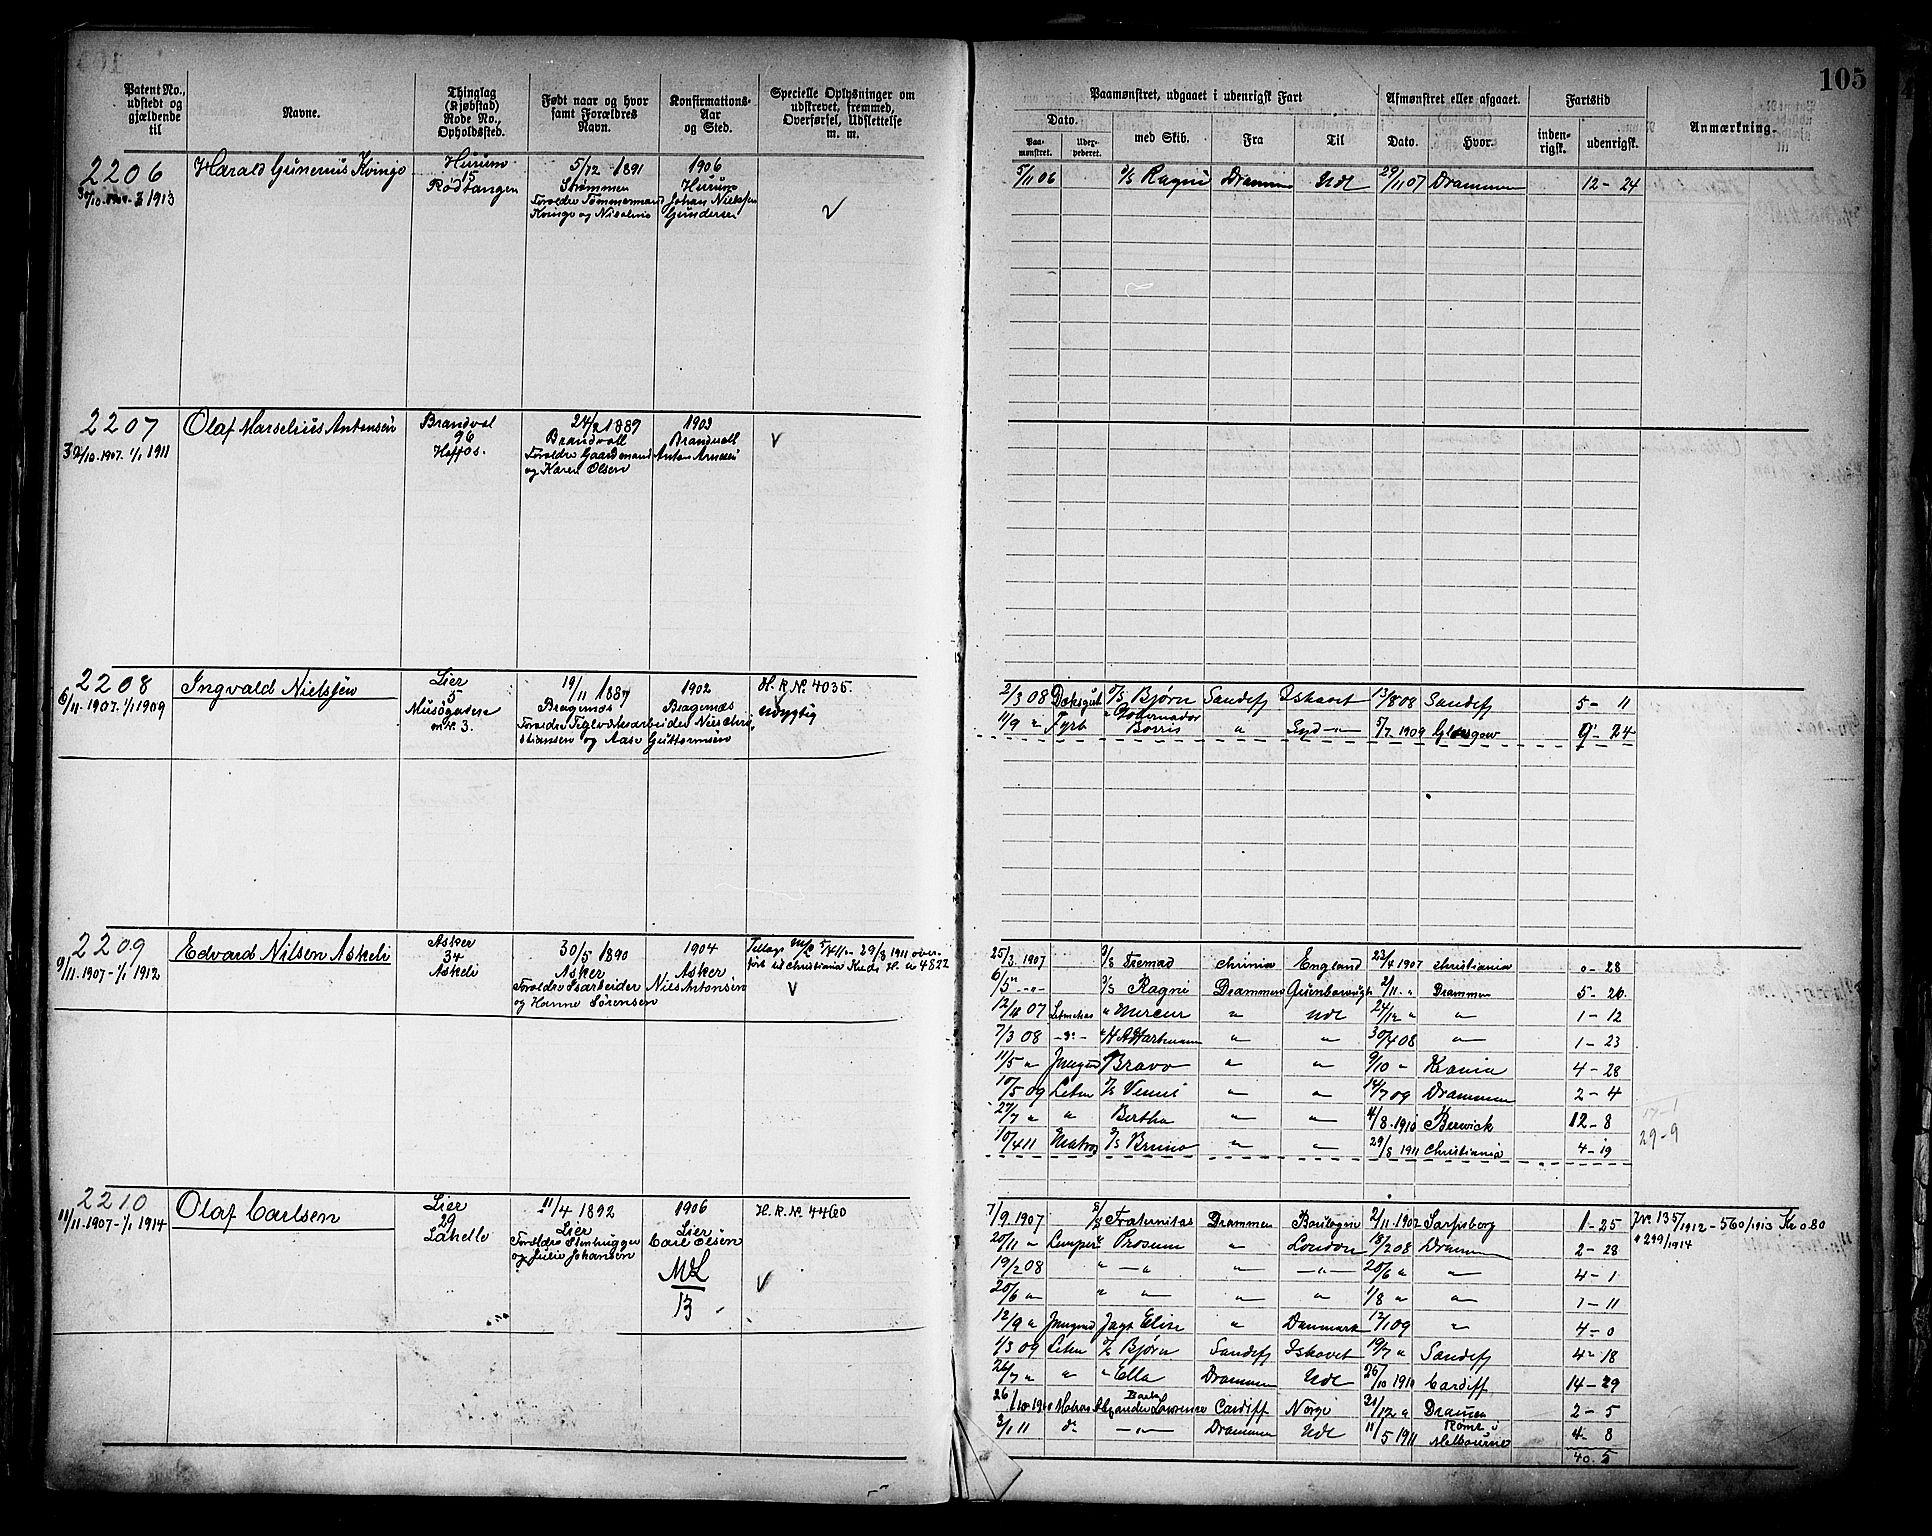 105
Patent No., udstedt og gjældende til
Navne.
Thinglag (Kjøbstad) Rode No., Opholdssted.
Født naar og hvor samt Forældres Navn.
Konfirmations- Aar og Sted.
Specielle Oplysninger om udskrevet, fremmed, Overførsel, Udslettelse m. m.
Paamønstret, udgaaet i udenrigsk Fart
Afmønstret eller afgaaet.
Fartstid
Anmærkning.
Dato.
Paa- mønstret.
med Skib.
Fra
Til
Dato.
Hvor.
inden- rigsk.
udenrigsk.
2206 Harald Gunerius Kvinge Hurum 5/12 1891 1906
15 Strømmen Hurum
1913 Rødtangen Forældre Tømmermand Johan Nielsen
Kvinge og Nicoline Gundersen
5/11 06 Ragni Drammen Udl 29/11 07 Drammen 12 - 24
2207 Olaf Marselius Antonsen Brandval 1889 1903
96 Brandvoll Brandvoll
1907. 1/1 1911 Forældre Gaardmand Anton
og Karen Olsen
2208 Ingvald Nielsen Lier 19/11 1887 1902 H. R. No. 4035.
6/11 1907. 1/1 1909 5 Bragenæs Bragenæs udygtig
No. 3. Forældre Teglverksarbeider Nils Chri-
stiansen og Aase Guttormsen
2/3 08 Bjørn Sandefj Ishavet 13/8 08 Sandefj 5 - 11
11/9 " Fyrb " Gouvernador Borris " Syd 5/7 1909 Glasgow 9 - 24
2209 Edvard Nilsen Askeli Asker 30/5 1890 1904
9/11 1907 - 1/1 1912 34 Asker Asker
Askeli Forældre Isarbeider Nils Antonsen
og Hanne Sørensen
29/8 1911 over-
ført til Christiania Kreds H. No 4822
25/3 1907 Fremad Chrinia England 23/4 1907 Christiania 0 - 28
6/5 Ragni Drammen 2/11 " Drammen 5 - 26
07 " Mercur " Udl 24/12 " " 1 - 12
7/3 08 " " 30/4 08 " 1 - 23
11/5 " Jungm Bravo " " 9/10 " Krania 4 - 28
10/5 09 Letm Venus " " 14/7 09 Drammen 2 - 4
27/7 " " Bertha " " 4/8 1910 Berwick 12 - 8
10/4 11 Matros Bruno " " 29/8 1911 Christiania 4 - 19
17-1
29-9
2210 Olaf Carlsen Lier 11/4 1892 1906 H. R. No. 4460
11/11 1907 - 1/1 1914 29 Lier Lier
Lahelle Forældre Stenhugger Carl Olsen
og Julie Johansen
13
7/9 1907 Fraternitas Drammen 2/11 1907 Sarpsborg 1 - 25 135/1912 - 560/1913 Kr 0 80
20/11 " Prosum " London 18/2 08 Drammen 2 - 28 299/1914
19/2 08 " " " " 20/6 " " 4 - 1
20/6 " " " " " 1/8 " " 1 - 11
12/9 " Jungmd Jagt Elise " Danmark 12/1 09 " 4 - 0
4/3 09 Letm Bjørn Sandefj Ishavet 19/7 " Sandefj 4 - 18
26/7 " " " Ella Drammen Udl 26/10 1910 Cardiff 14 - 29
26/10 1910 Matros Bark Alexander Lawrence Cardiff Norge 31/12 " Drammen 2 - 5
3/1 11 do " Drammen Udl 11/5 1911 Rømt i Melbourne 4 - 8
40. 5